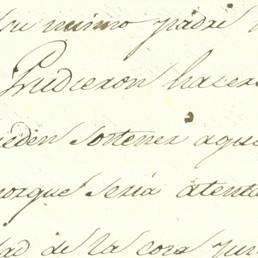 mismo padre
Pudieron hacer
eden sostener aque
porque seria atenta
dad de la cosa